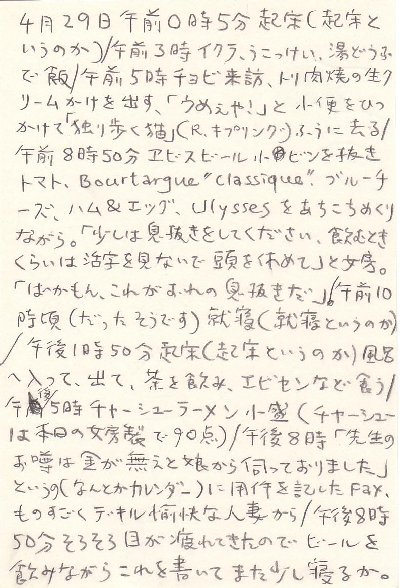 4月29日午前0時5分起床(起床と
いうのか)/午前3時イクラ、うこっけい、湯どうふ
で飯/午前5時チョビ来訪、トリ肉焼の生ク
リームかけを出す、「うめえや!」と小便をひっ
かけて「独り歩く猫」(R.キプリング)ふうに去る/
午前8時50分ヱビスビール小ビンを抜き
トマト、Bourtargue "classique"、ブルーチ
ーズ、ハム&エッグ、Ulyssesをあちこちめくり
ながら。「少しは息抜きをしてください、飲むとき
くらいは活字を見ないで頭を休めて」と女房。
「ばかもん、これがおれの息抜きだ」。/午前10
時頃(だったそうです)就寝(就寝というのか)
/午後1時50分起床(起床というのか)風呂
へ入って、出て、茶を飲み、エビセンなど食う/
午後5時チャーシューラーメン小盛(チャーシュー
は本日の女房製で90点)/午後8時「先生の
お噂は金が無えと娘から伺っておりました」
というの(なんとかカレンダー)に用件を記したFax、
ものすごくデッキル愉快な人妻から/午後8時
50分そろそろ目が疲れてきたのでビールを
飲みながらこれを書いてまた少し寝るか。